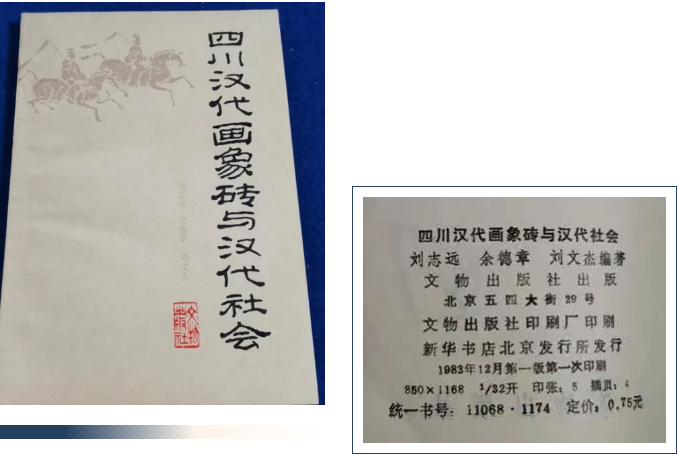 四川汉代画象砖与汉代社会
刘志远 余德章 刘文杰
文物
出版社
四川汉代画象砖与汉代社会
刘志远 余德章 刘文杰编著
文物出版社出版
北京五四大街29号
文物出版社印刷厂印刷
新华书店北京发行所发行
1983年12月第一版第一次印刷
850×1168 1/32开 印张：5 插页：4
统一书号：11068·1174 定价：0.75元